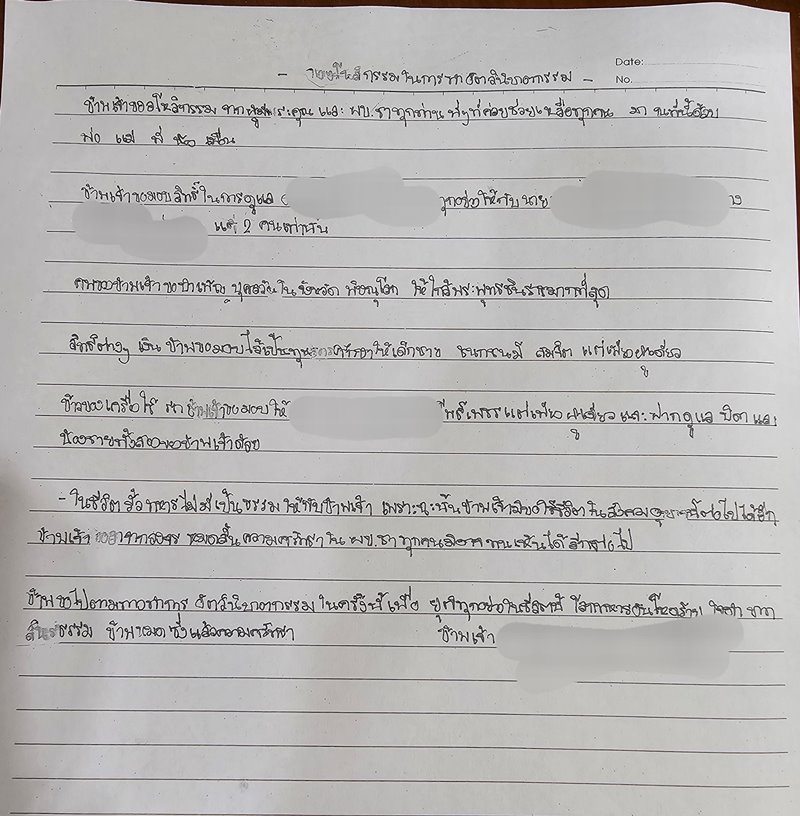 Date:
No.
- ขออโหสิกรรมในการทำอัตวินิบาตกรรม -
ข้าพเจ้าขออโหสิกรรม จากผู้มีพระคุณ และ ผบ.ชาทุกท่าน พี่ๆที่คอยช่วยเหลือทุกคน ณ ที่นี้ด้วย
พ่อ แม่ พี่ น้อง เพื่อน
ข้าพเจ้าขอมอบสิทธิ์ในการดูแล ทุกอย่างให้กับนาย
แค่ 2 คนเท่านั้น
ศพของข้าพเจ้าขอบำเพ็ญ กุศลวัดในจังหวัด พิษณุโลก ให้ใกล้พระพุทธชินราชมากที่สุด
สิทธิต่างๆ เงิน ข้าพขอมอบไว้เป็นทุนการศึกษาให้เด็กชาย แต่เพียงผู้เดียว
ข้าวของเครื่องใช้ รถ ข้าพเจ้าขอมอบให้ แต่เพียงผู้เดียว และฝากดูแล บิดา และ
น้องชายทั้งสองของข้าพเจ้าด้วย
- ในชีวิตรั้วทหารไม่มีเป็นธรรมให้กับข้าพเจ้า เพราะฉะนั้นข้าพเจ้ามิขอใช้ชีวิตในสังคมอุบาทนี้ต่อไปได้อีก
ข้าพเจ้า ขอลาจากลอง หมดสิ้นความศรัทธาใน ผบ.ชา ทุกคนมิอาจทนเห็นได้อีกต่อไป
ข้าพขอไปตามทางการทำการ อัตวินิบาตกรรมในครั้งนี้เพื่อ ยุติทุกอย่างในชีวิตนี้ โลกทหารอันโหดร้าย ใจดำ ขาด
ศีลธรรม ข้าพหมดซึ่งแล้วความศรัทธา ข้าพเจ้า